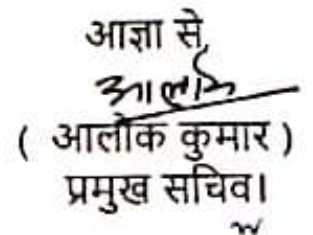 आज्ञा से,
आलोक
( आलोक कुमार )
प्रमुख सचिव।